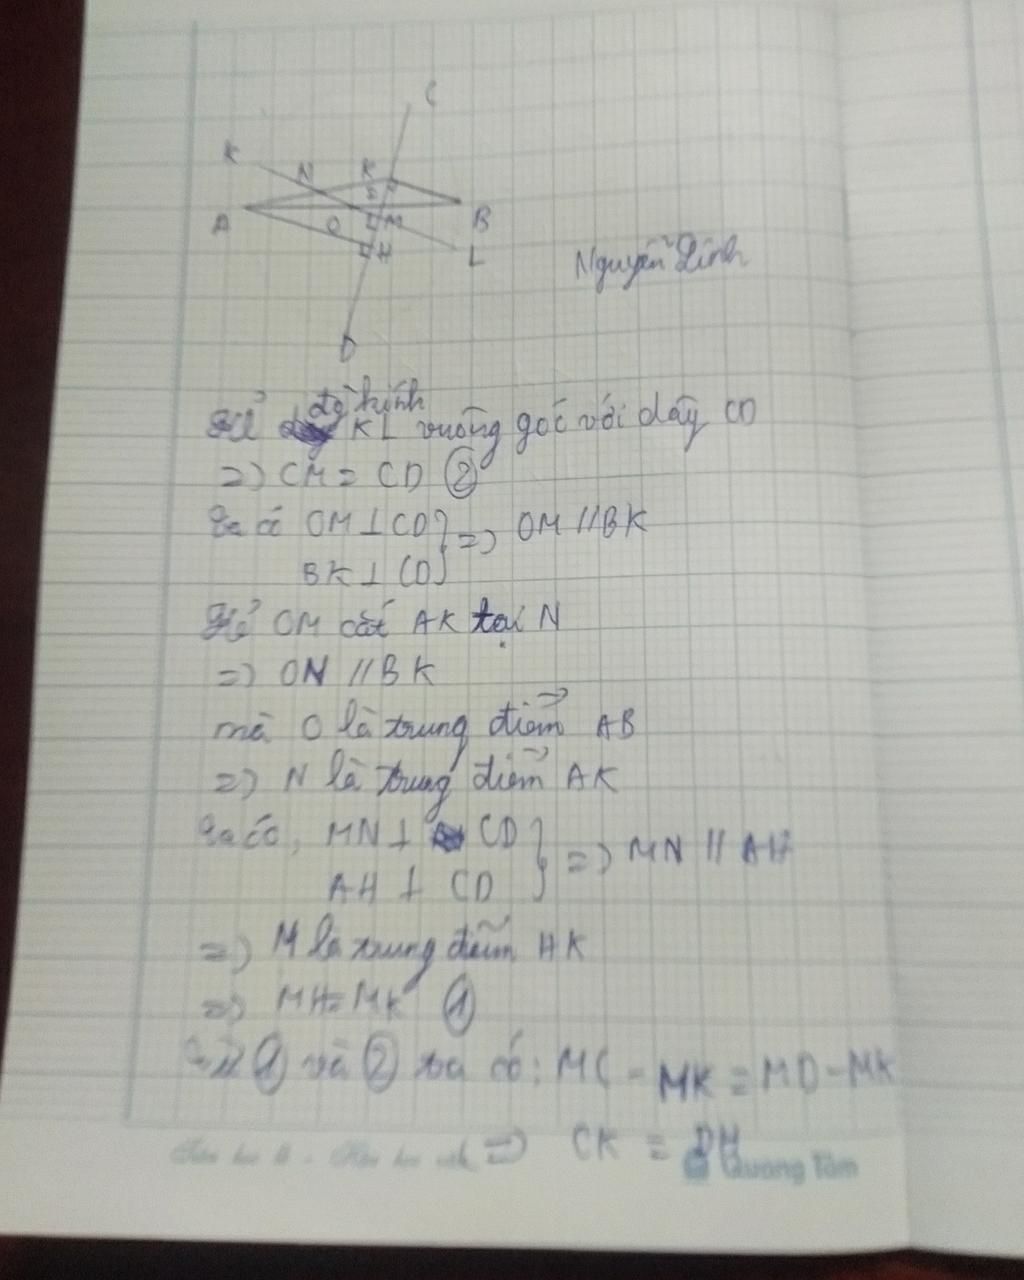 C
K N K
A I B
O M
H L
Nguyễn Linh
D
đg kính
Kẻ KL vuông góc với dây CD
=) CM = CD ②
Ta có OM ⊥ CD } =) OM // BK
BK ⊥ CD
Kẻ OM cắt AK tại N
=) ON // BK
mà O là trung điểm AB
=) N là trung điểm AK
Ta có, MN ⊥ CD } =) MN // AH
AH ⊥ CD
=) M là trung điểm HK
=) MH = MK ①
Từ ① và ② ta có: MC - MK = MD - MK
=) CK = DH
Quang Tâm